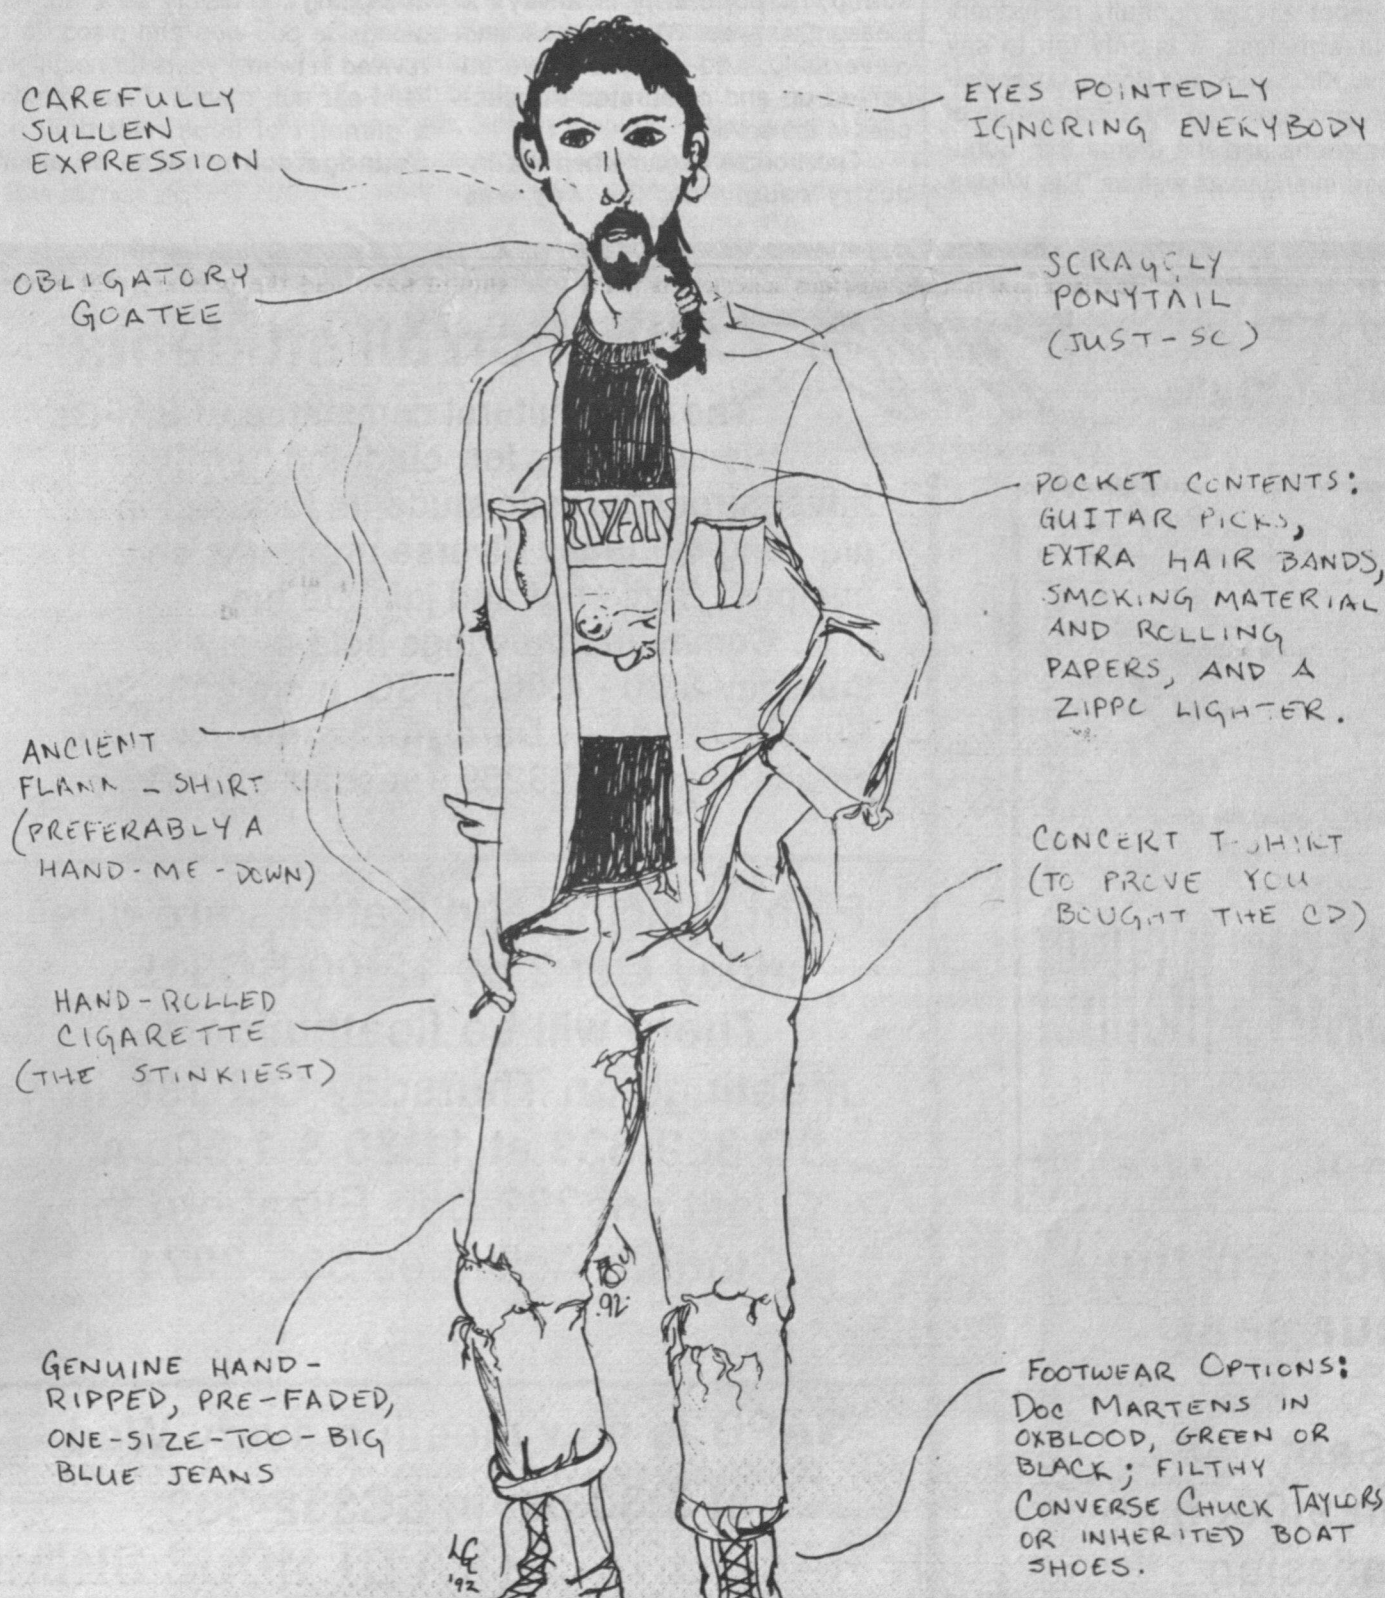 CAREFULLY
SULLEN
EXPRESSION
EYES POINTEDLY
IGNORING EVERYBODY
OBLIGATORY
GOATEE
SCRAGGLY
PONYTAIL
(JUST-SO)
POCKET CONTENTS:
GUITAR PICKS,
EXTRA HAIR BANDS,
SMOKING MATERIAL
AND ROLLING
PAPERS, AND A
ZIPPO LIGHTER.
RVAN
ANCIENT
FLANN - SHIRT
(PREFERABLY A
HAND-ME-DOWN)
CONCERT T-SHIRT
(TO PROVE YOU
BOUGHT THE CD)
HAND-ROLLED
CIGARETTE
(THE STINKIEST)
'92
GENUINE HAND-
RIPPED, PRE-FADED,
ONE-SIZE-TOO-BIG
BLUE JEANS
FOOTWEAR OPTIONS:
DOC MARTENS IN
OXBLOOD, GREEN OR
BLACK; FILTHY
CONVERSE CHUCK TAYLORS
OR INHERITED BOAT
SHOES.
'92